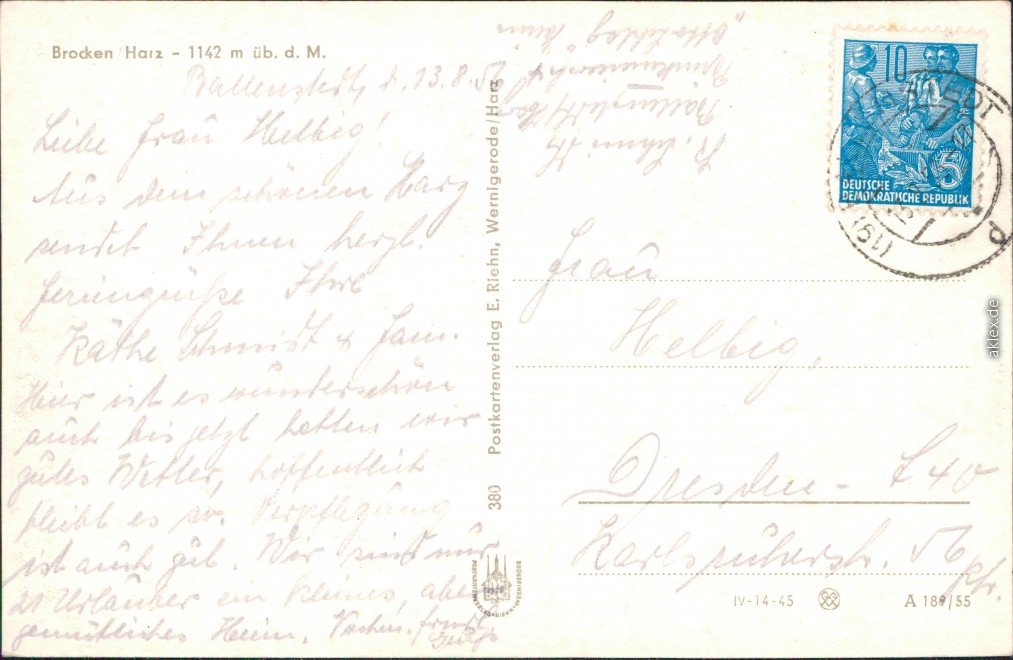 Brocken/Harz – 1142 m üb. d. M.
Ballenstedt, d. 13.8.
Liebe Frau Helbig!
Aus dem schönen Harz
sendet Ihnen herzl.
Feriengrüße Ihre
Käthe Schmidt & Fam.
Hier ist es wunderschön
auch bis jetzt hatten wir
gutes Wetter, hoffentlich
bleibt es so. Verpflegung
ist auch gut. Wir sind nur
21 Urlauber ein kleines, aber
gemütliches Heim.
K. Schmidt
Ballenstedt/Harz
"Otto Schlag" Heim
380 Postkartenverlag E. Riehn, Wernigerode/Harz
10
5
DEUTSCHE
DEMOKRATISCHE REPUBLIK
Frau
Helbig,
Dresden-
Karlsruherstr. 56
IV-14-45
A 189/55
aklex.de